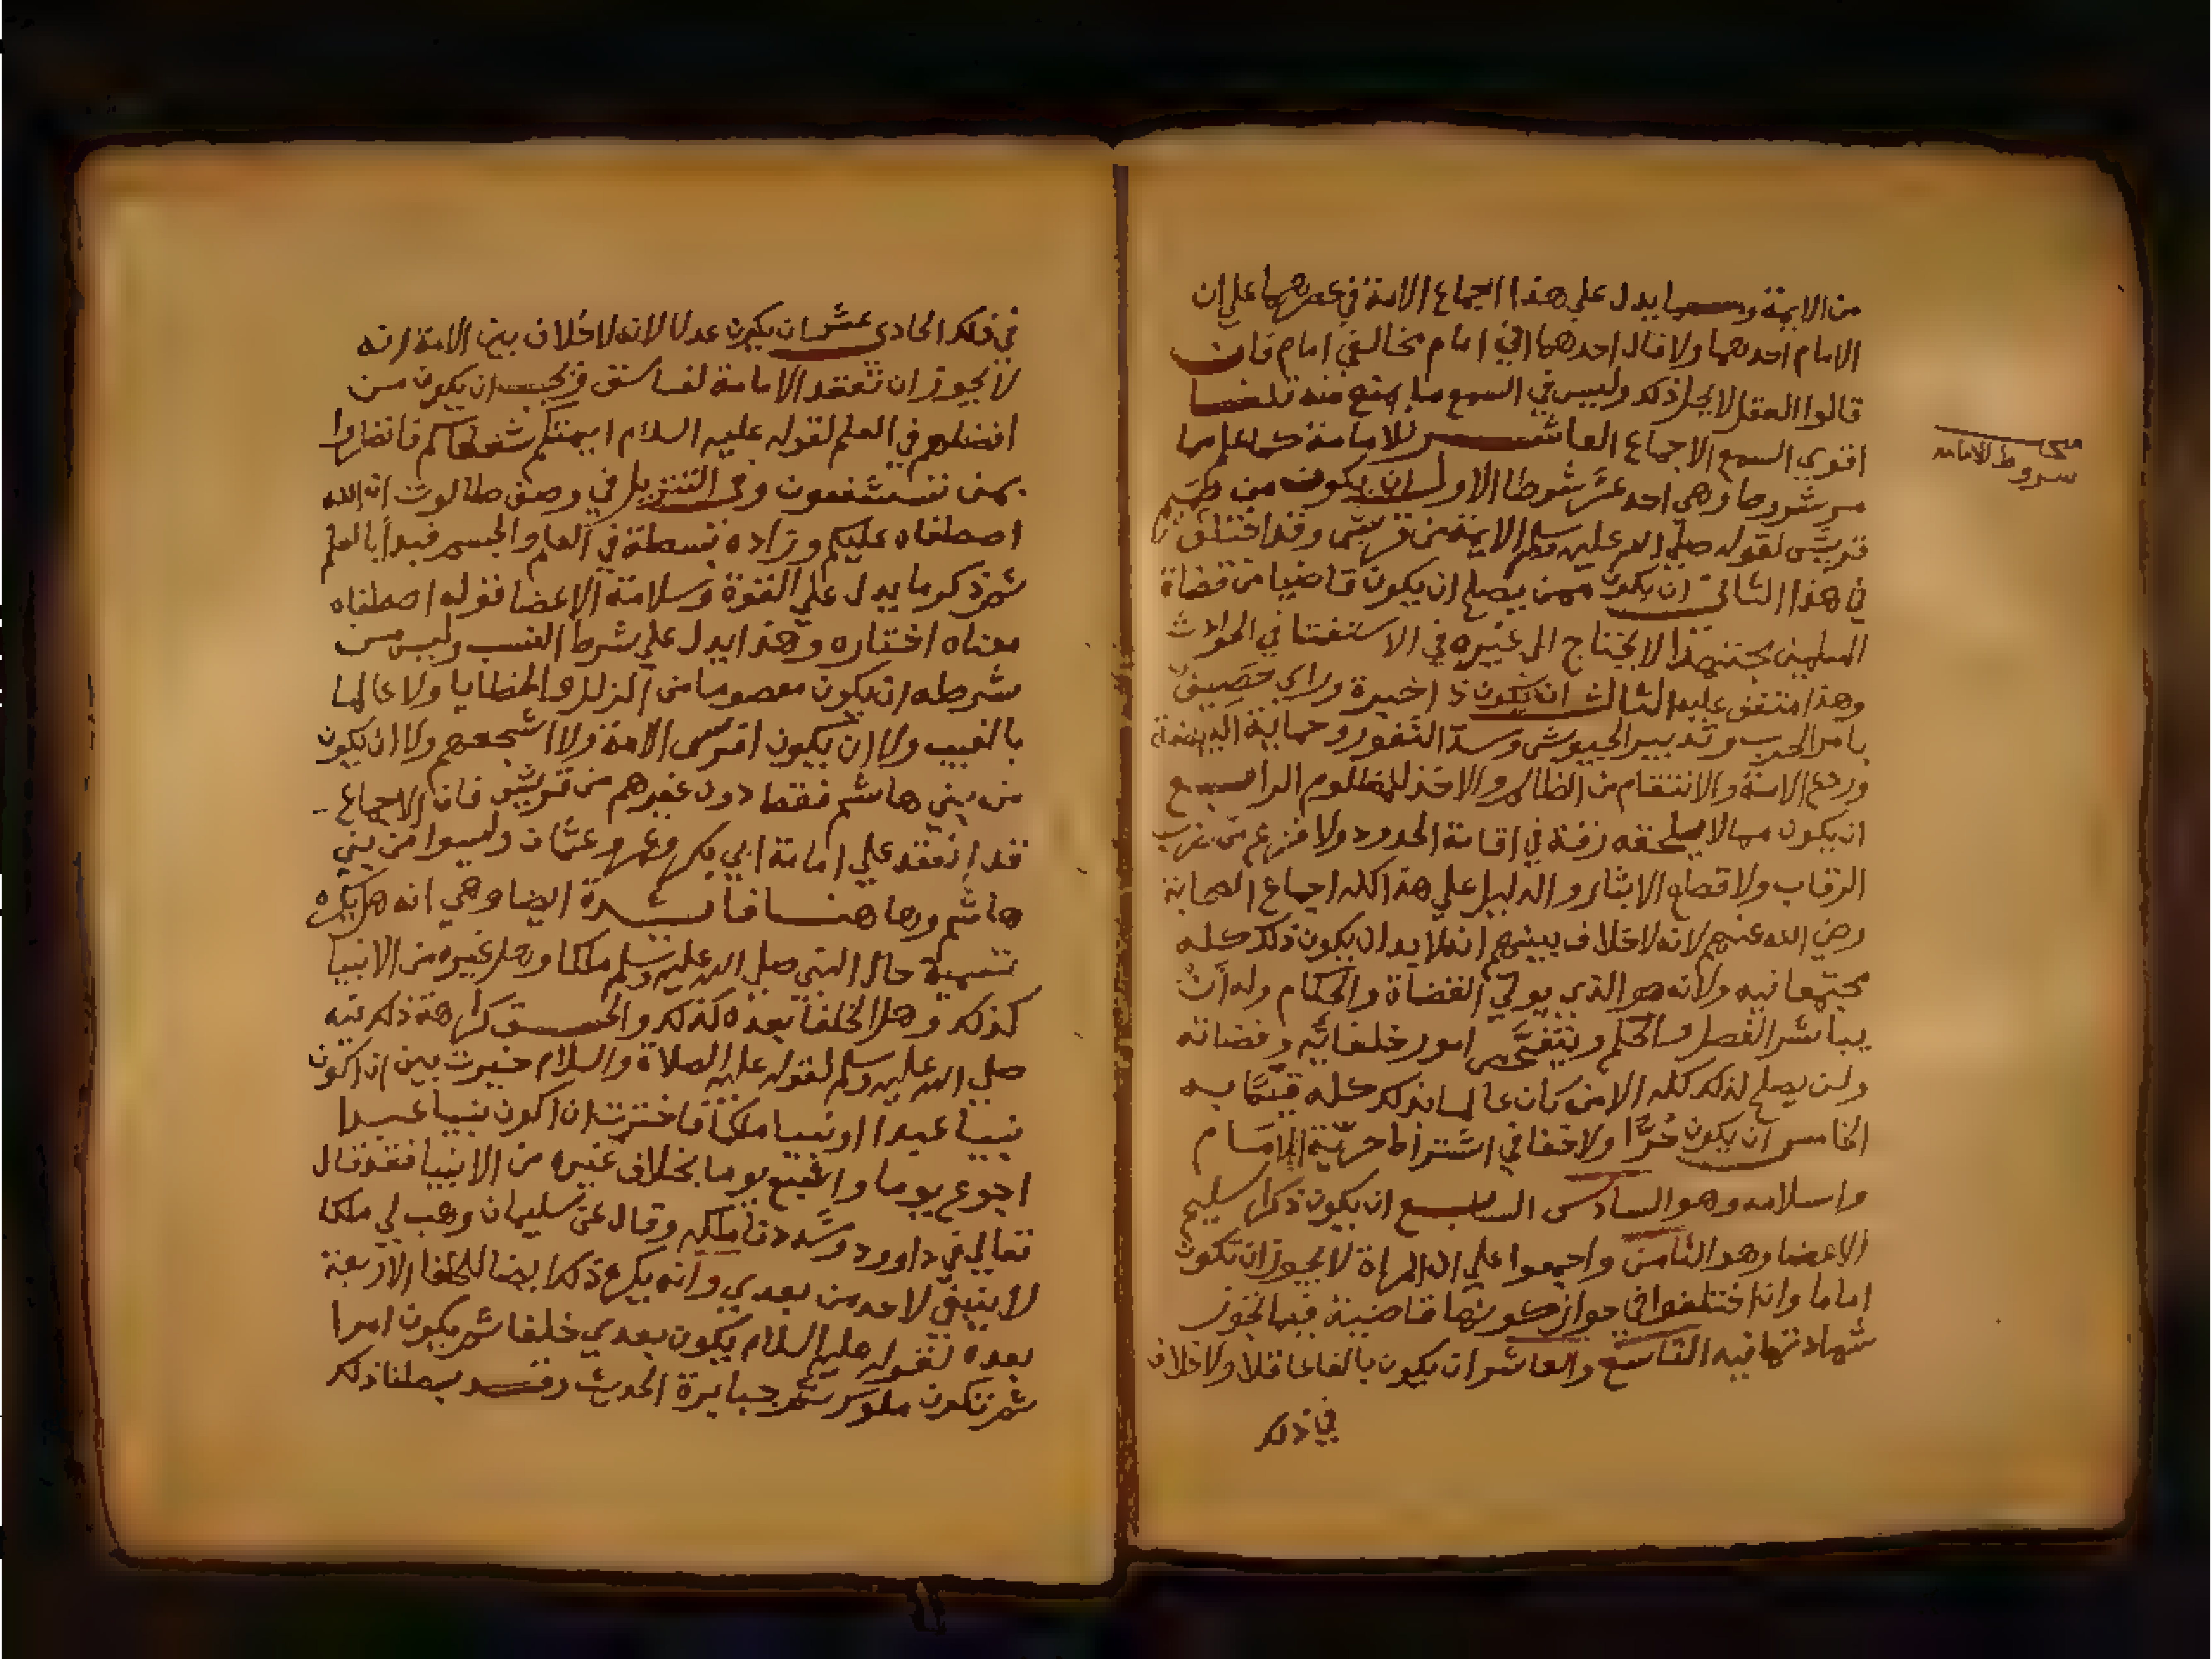 من الايمة ومما يدل علي هذا اجماع الامة في عصرهما علي ان
الامام احدهما ولا قال احدهما اني امام مخالفي امام فان
قالوا العقل لا يحيل ذلك وليس في السمع ما يمنع منه قلنا
اقوي السمع الاجماع العاشر للامامة
شروط وهي احد عشر شرطا الاول ان يكون من صميم
قريش لقوله صلي الله عليه وسلم الايمة من قريش وقد اختلف
في هذا الثاني ان يكون ممن يصلح ان يكون قاضيا من قضاة
المسلمين مجتهدا لا يحتاج الي غيره في الاستفتا في الحوادث
وهذا متفق عليه الثالث ان يكون ذا خبرة وراي حصيف
بامر الحرب وتدبير الجيوش وسد الثغور وحماية البيضة
وردع الامة والانتقام من الظالم والاخذ للمظلوم الرابع
ان يكون ممن لا يلحقه رقة في اقامة الحدود ولا فزع من ضرب
الرقاب ولا قطع الابشار والدليل علي هذا كله اجماع الصحابة
رضي الله عنهم لانه لا خلاف بينهم انه لا بد ان يكون ذلك كله
مجتمعا فيه ولانه هو الذي يولي القضاة والحكام وله ان
يباشر الفصل والحكم ويتفحص امور خلفائه وقضاته
ولن يصلح لذلك كله الا من كان عالما بذلك كله قيما به
الخامس ان يكون حرا ولا خفا في اشتراط حرية الامام
واسلامه وهو السادس السابع ان يكون ذكرا سليم
الاعضا وهو الثامن واجمعوا علي ان المراة لا يجوز ان تكون
اماما وان اختلفوا في جواز كونها قاضية فيما تجوز
شهادتها فيه التاسع والعاشر ان يكون بالغا عاقلا ولا خلاف
في ذلك
شروط الامامه
في ذلك الحادي عشر ان يكون عدلا لانه لا خلاف بين الامة انه
لا يجوز ان تعقد الامامة لفاسق ويجب ان يكون من
افضلهم في العلم لقوله عليه السلام ايمتكم شفعاؤكم فانظروا
بمن تستشفعون وفي التنزيل في وصف طالوت ان الله
اصطفاه عليكم وزاده بسطة في العلم والجسم فبدا بالعلم
ثم ذكر ما يدل علي القوة وسلامة الاعضا فقوله اصطفاه
معناه اختاره وهذا يدل علي شرط النسب وليس من
شرطه ان يكون معصوما من الزلل والخطايا ولا عالما
بالغيب ولا ان يكون افرس الامة ولا اشجعهم ولا ان يكون
من بني هاشم فقط دون غيرهم من قريش فان الاجماع
قد انعقد علي امامة ابي بكر وعمر وعثمان وليسوا من بني
هاشم وها هنا فائدة ايضا وهي انه هل يكره
تسمية حال النبي صلي الله عليه وسلم ملكا وهل غيره من الانبيا
كذلك وهل الخلفا بعده كذلك والحق كراهة ذلك فيه
صلي الله عليه وسلم لقوله عليه الصلاة والسلام خيرت بين ان اكون
نبيا عبدا او نبيا ملكا فاخترت ان اكون نبيا عبدا
اجوع يوما واشبع يوما بخلاف غيره من الانبيا فقد قال
تعالي في داوود وشددنا ملكه وقال عن سليمان وهب لي ملكا
لا ينبغي لاحد من بعدي وانه يكره ذلك ايضا للخلفا الاربعة
بعده لقوله عليه السلام يكون بعدي خلفا ثم يكون امرا
ثم تكون ملوك ثم جبابرة الحديث وقد بسطنا ذلك